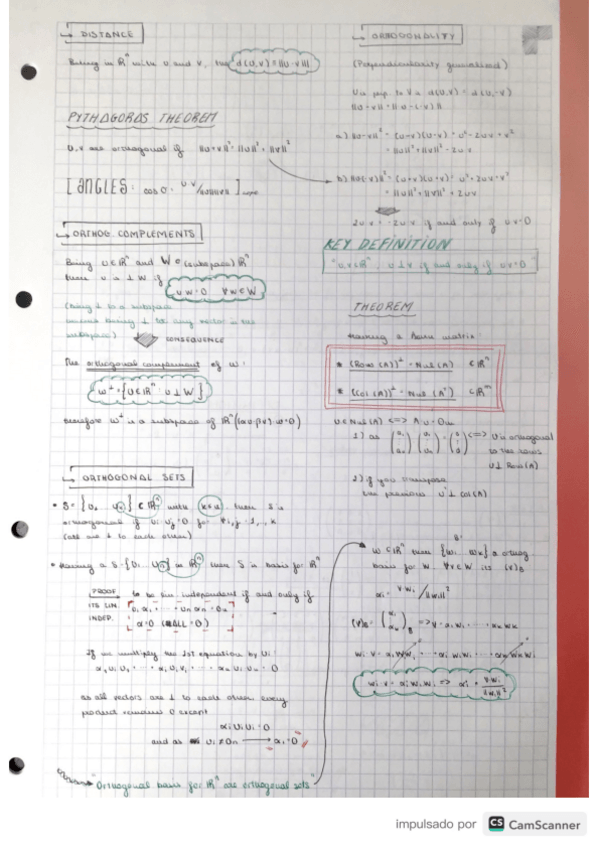 DISTANCE
Being in ℝⁿ with u and v, the d(u,v) = ||u-v||
PYTHAGORAS THEOREM
u,v are orthogonal if ||u+v||² = ||u||² + ||v||²
[ANGLES: cos θ =
ORTHOG. COMPLEMENTS
Being u∈ℝⁿ and W (subspace) ℝⁿ
then u is ⊥ W if u·w=0 ∀w∈W
(being ⊥ to a subspace
means being ⊥ to any vector in the
subspace)
CONSEQUENCE
The orthogonal complement of W:
W⊥={u∈ℝⁿ: u⊥W}
therefore W⊥ is a subspace of ℝⁿ
ORTHOGONAL SETS
orthogonal if ui·uj=0 for
(all are ⊥ to each other)
then S is basis for ℝⁿ
PROOF to be lin. independent if and only if
ITS LIN.
INDEP. (ALL=0)
If we multiply the 1st equation by ui:
as all vectors are ⊥ to each other every
product remains 0 except
αi ui ui = 0
and as ui ≠ 0n → αi = 0
"Orthogonal basis for ℝⁿ are orthogonal sets"
ORTHOGONALITY
(Perpendicularity generalized)
u is perp. to v if d(u,v) = d(u,-v)
||u-v|| = ||u-(-v)||
a) ||u-v||² = (u-v)(u-v) = u²-2uv+v²
= ||u||²+||v||²-2uv
b) ||u-(-v)||² = (u+v)(u+v) = u²+2uv+v²
= ||u||²+||v||²+2uv
2uv = -2uv if and only if uv=0
KEY DEFINITION
"u,v∈ℝⁿ, u⊥v if and only if uv=0"
THEOREM
Having a Amxn matrix:
* (Row(A))⊥ = Nul(A) ∈ℝⁿ
* (Col(A))⊥ = Nul(Aᵀ) ⊂ℝᵐ
u∈Nul(A) <=> Au=0m
1) as <=> u is orthogonal
to the rows
u⊥Row(A)
2) if you transpose
the previous u⊥col(A)
basis for W. ∀v∈W its (v)B
αi = v·wi/||wi||²
wi·v = αi wi wi => αi = v·wi/||wi||²
impulsado por CS CamScanner